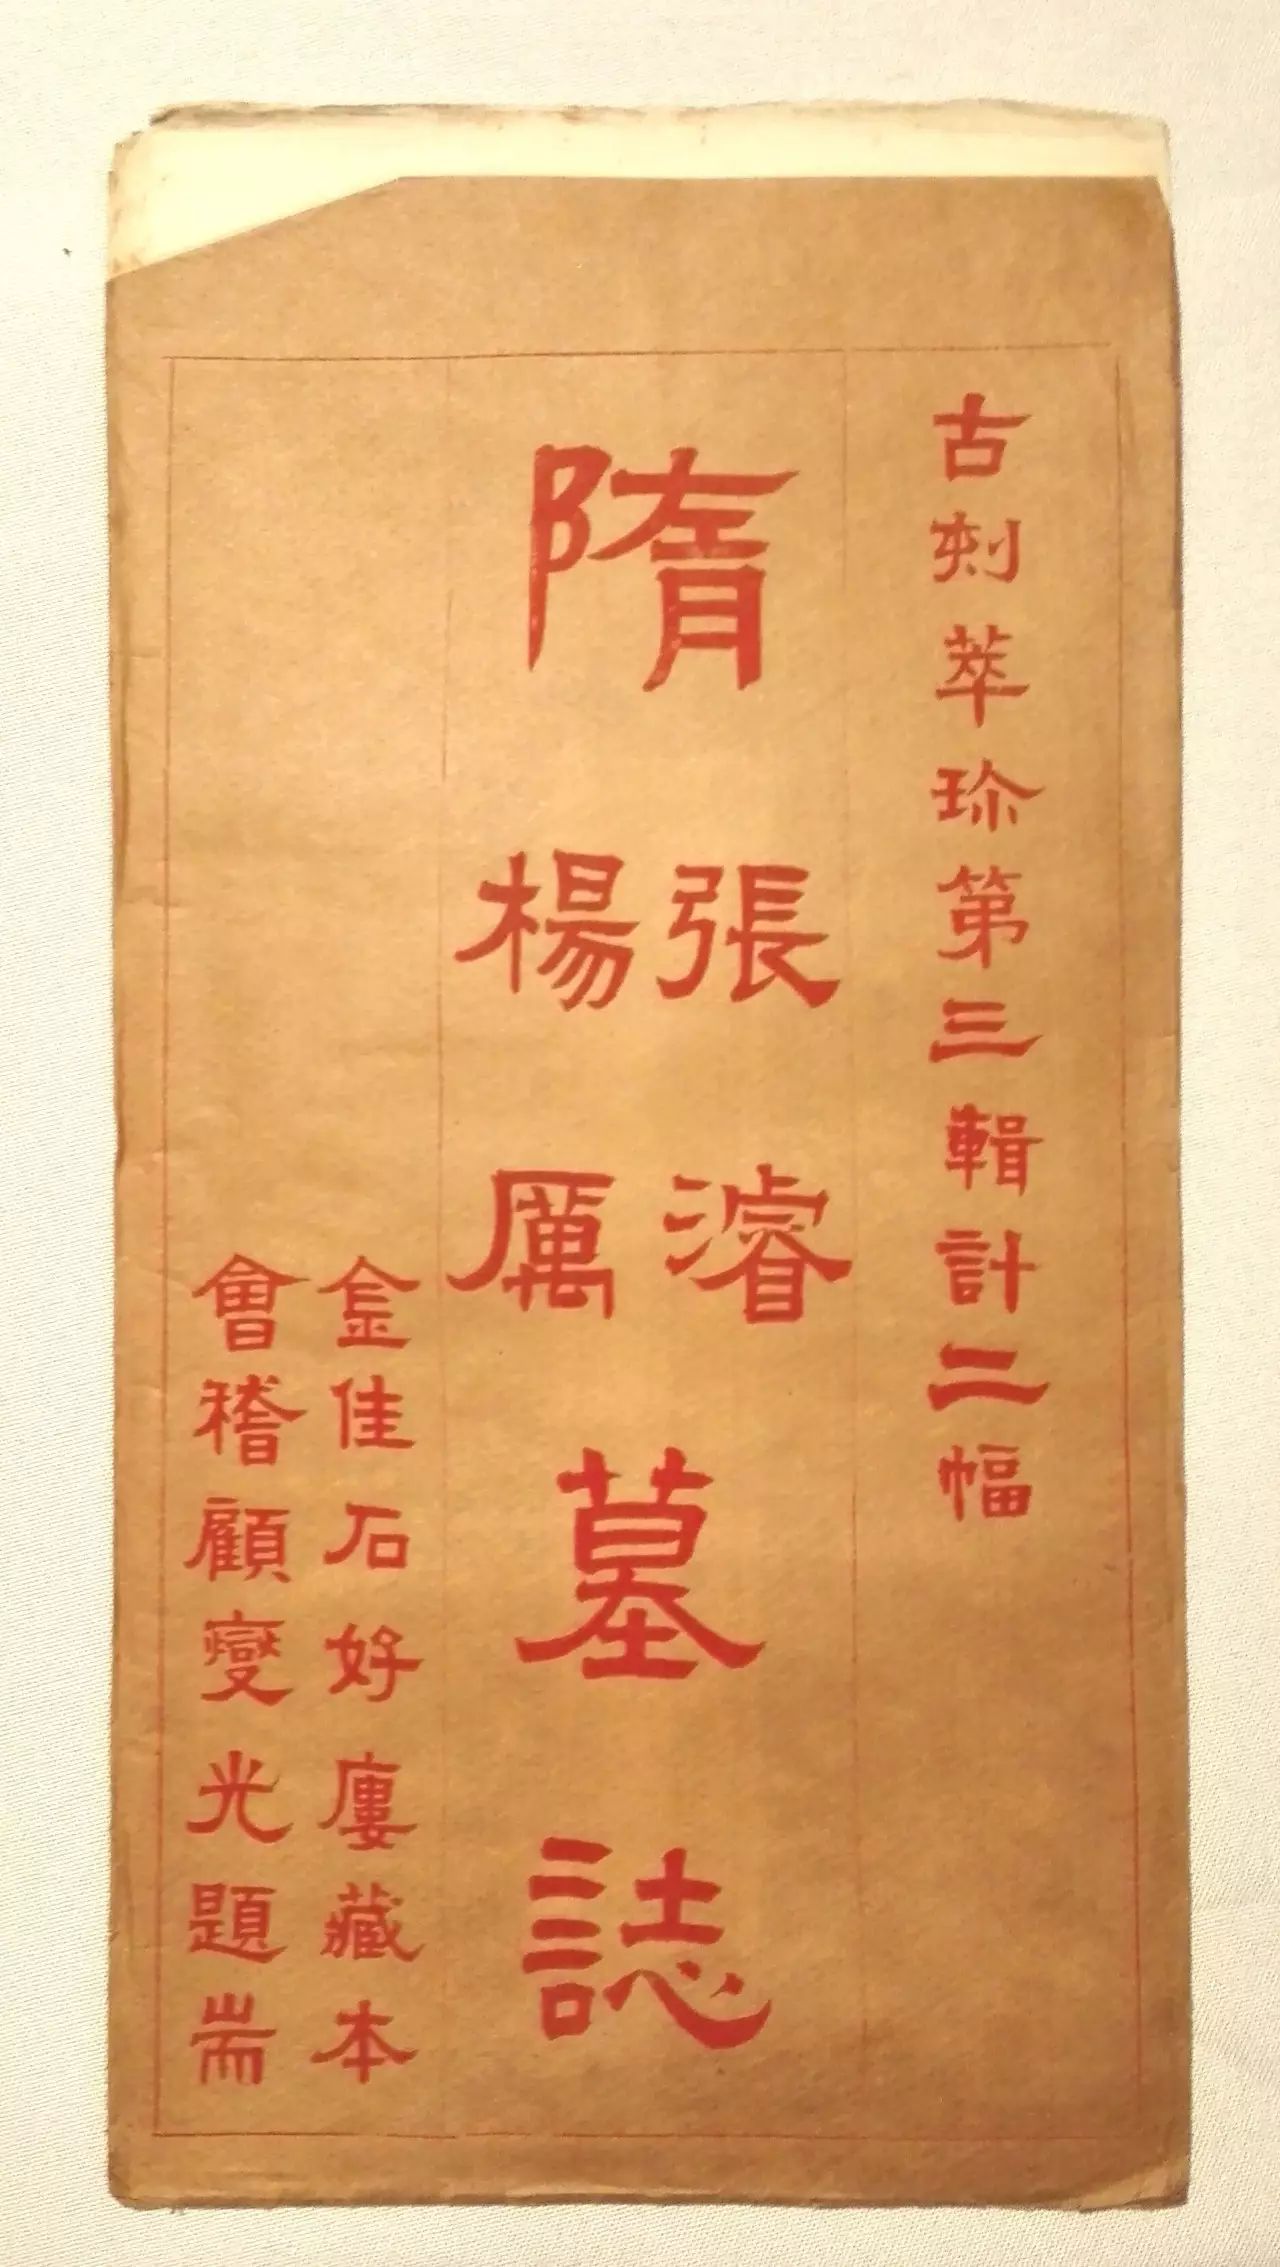 古刻萃珎第三輯計二幅
隋張濬楊厲墓誌
金佳石好廔藏本
會稽顧燮光題耑